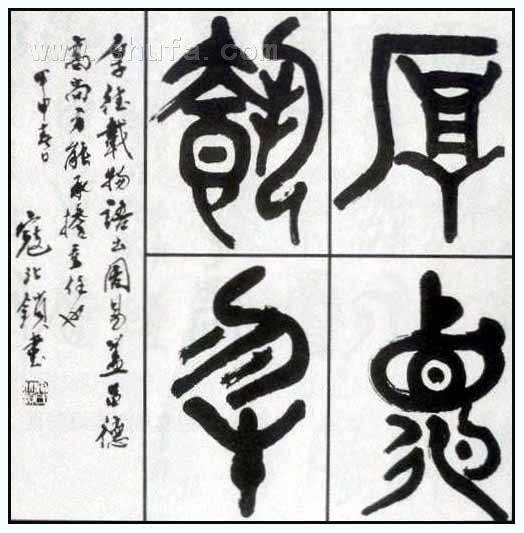 www.shufa.com
厚德
載物
厚德載物語出周易蓋品德
高尚方能承擔重任也
甲申春日
寇北鎖書